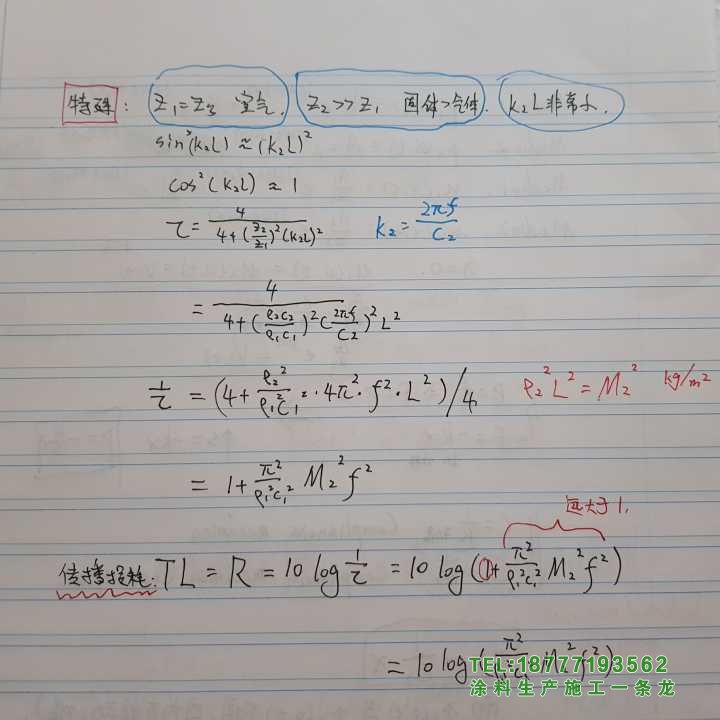 特殊: Z₁=Z₃ 空气. Z₂>>Z₁ 固体>气体. k₂L非常小.
sin²(k₂L)≈(k₂L)²
cos²(k₂L)≈1
τ=4/(4+(Z₂/Z₁)²(k₂L)²) k₂=2πf/C₂
=4/(4+(ρ₂C₂/ρ₁C₁)²(2πf/C₂)²L²)
1/τ=(4+ρ₂²/ρ₁²C₁²·4π²·f²·L²)/4 ρ₂²L²=M₂² kg/m²
=1+π²/ρ₁²C₁² M₂²f²
远大于1.
传播损耗: TL=R=10log 1/τ=10log(1+π²/ρ₁²C₁² M₂²f²)
=10log(π²/ρ₁²C₁² M₂²f²)
TEL:18777193562
涂料生产施工一条龙